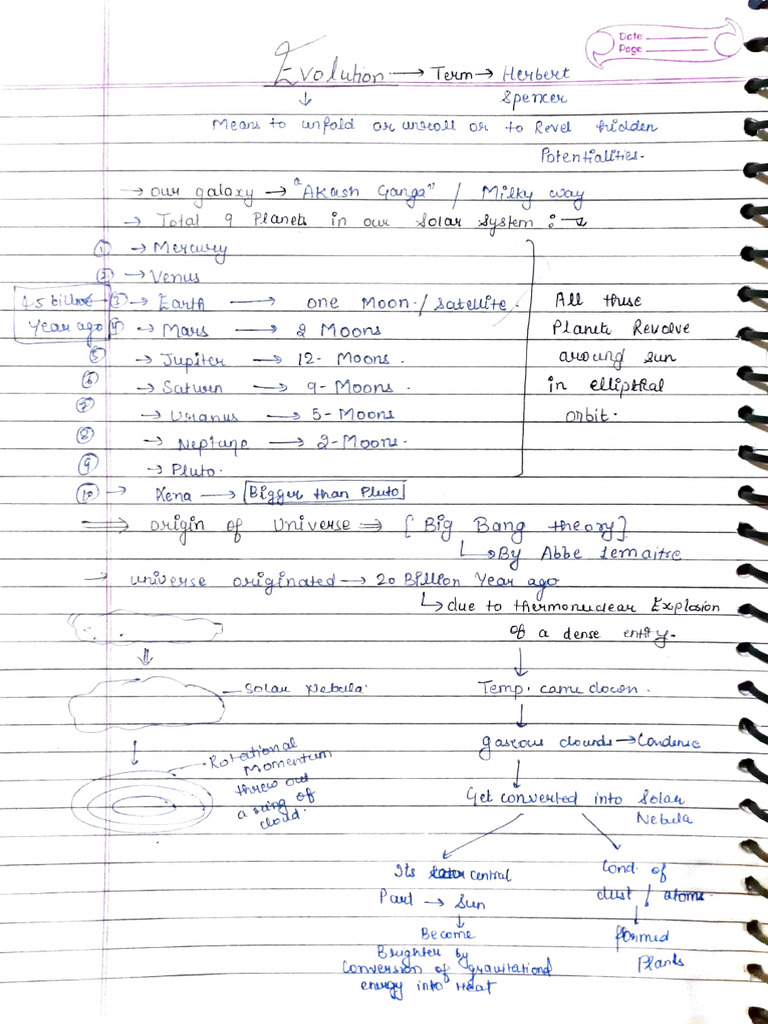 Date
Page
Evolution → Term → Herbert
Spencer
Means to unfold or unroll or to Revel hidden
Potentialities.
→ our galaxy → "Akash Ganga" / Milky way
→ Total 9 Planets in our Solar System :→
① → Mercury
② → Venus
4.5 billion ③ → Earth → one Moon / Satellite. All these
Year ago ④ → Mars → 2 Moons Planet Revolve
⑤ → Jupiter → 12- Moons. around sun
⑥ → Saturn → 9- Moons. in elliptkal
⑦ → Uranus → 5- Moons orbit.
⑧ → Neptune → 2-Moons.
⑨ → Pluto.
⑩ → Xena → Bigger than Pluto
⇒ origin of Universe ⇒ [Big Bang theory]
↳ By Abbe Lemaitre
→ universe originated → 20 Billion Year ago
↳ due to thermonuclear Explosion
of a dense entity.
Solar Nebula.
Temp. came down.
Rotational
Momentum
threw out
a ring of
cloud.
gaseous clounds → Condense
Get converted into Solar
Nebula
Its central
Part → Sun
Become
Brighter by
Conversion of gravitational
energy into Heat
Cond. of
dust / atoms.
formed
Plants